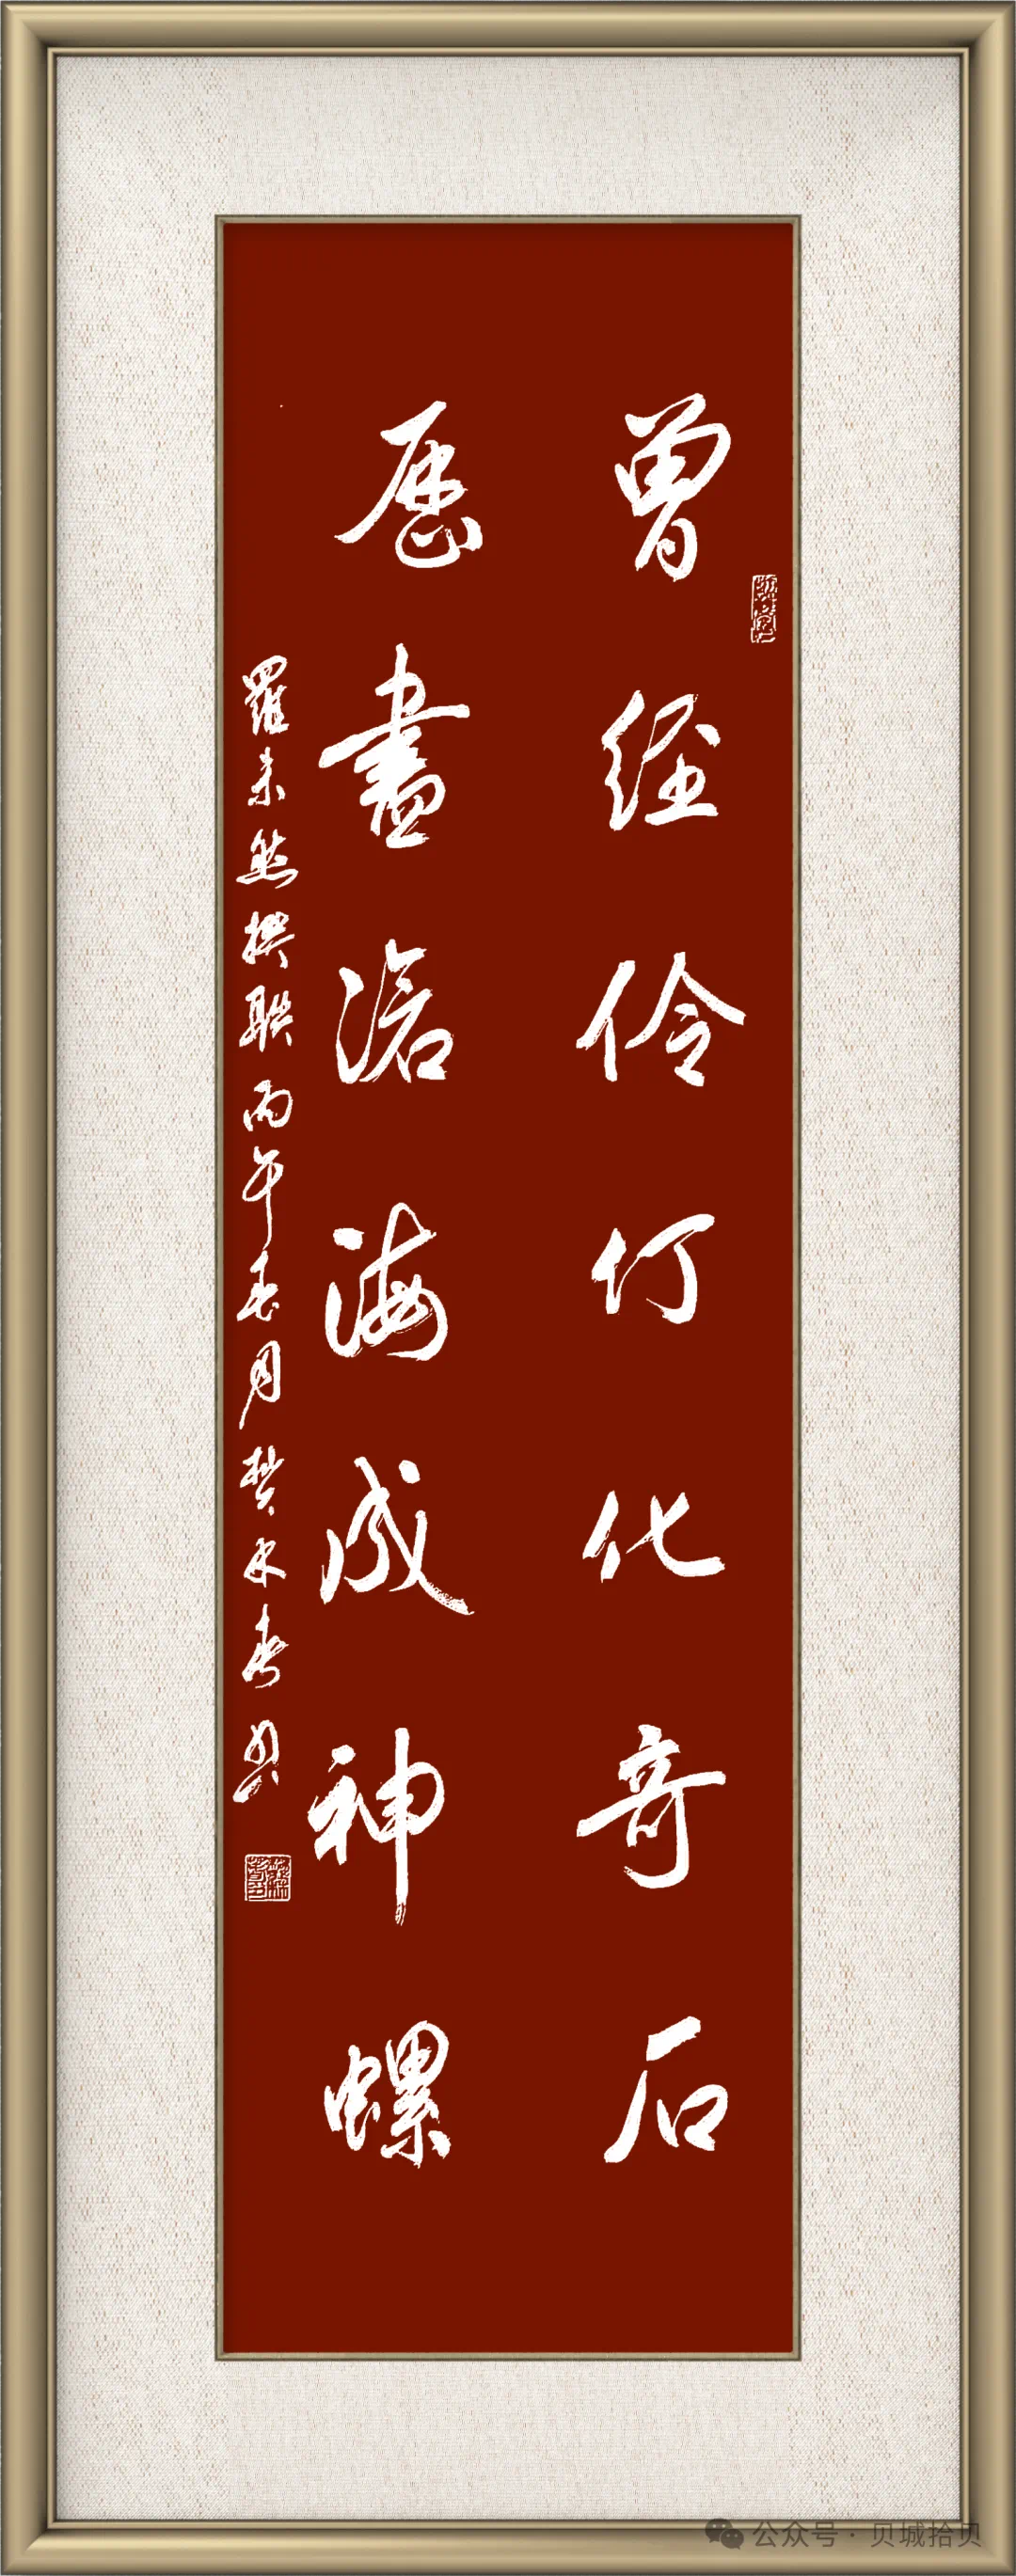 曾经伶仃化奇石
历尽沧海成神螺
羅未然撰联丙午春月楚水春
公众号 · 贝城拾贝